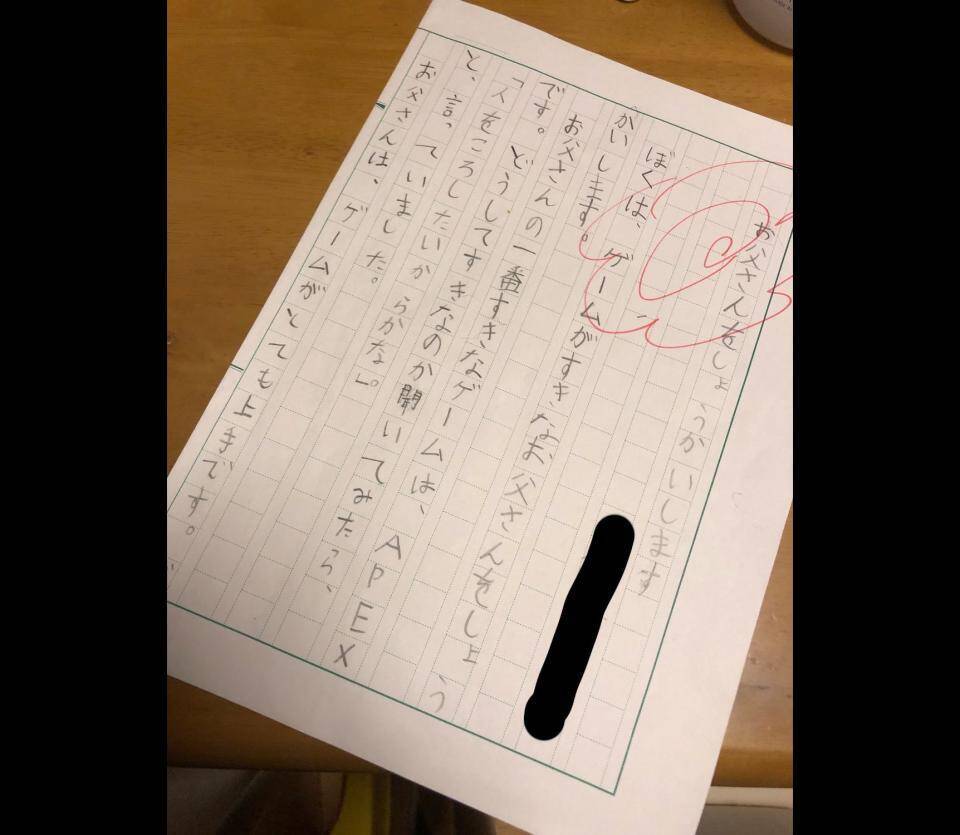 お父さんをしょうかいします
ぼくは、ゲームがすきなお父さんをしょう
かいします。
お父さんの一番すきなゲームは、APEX
です。どうしてすきなのか聞いてみたら、
「人をころしたいからかな」。
と、言っていました。
お父さんは、ゲームがとても上手です。